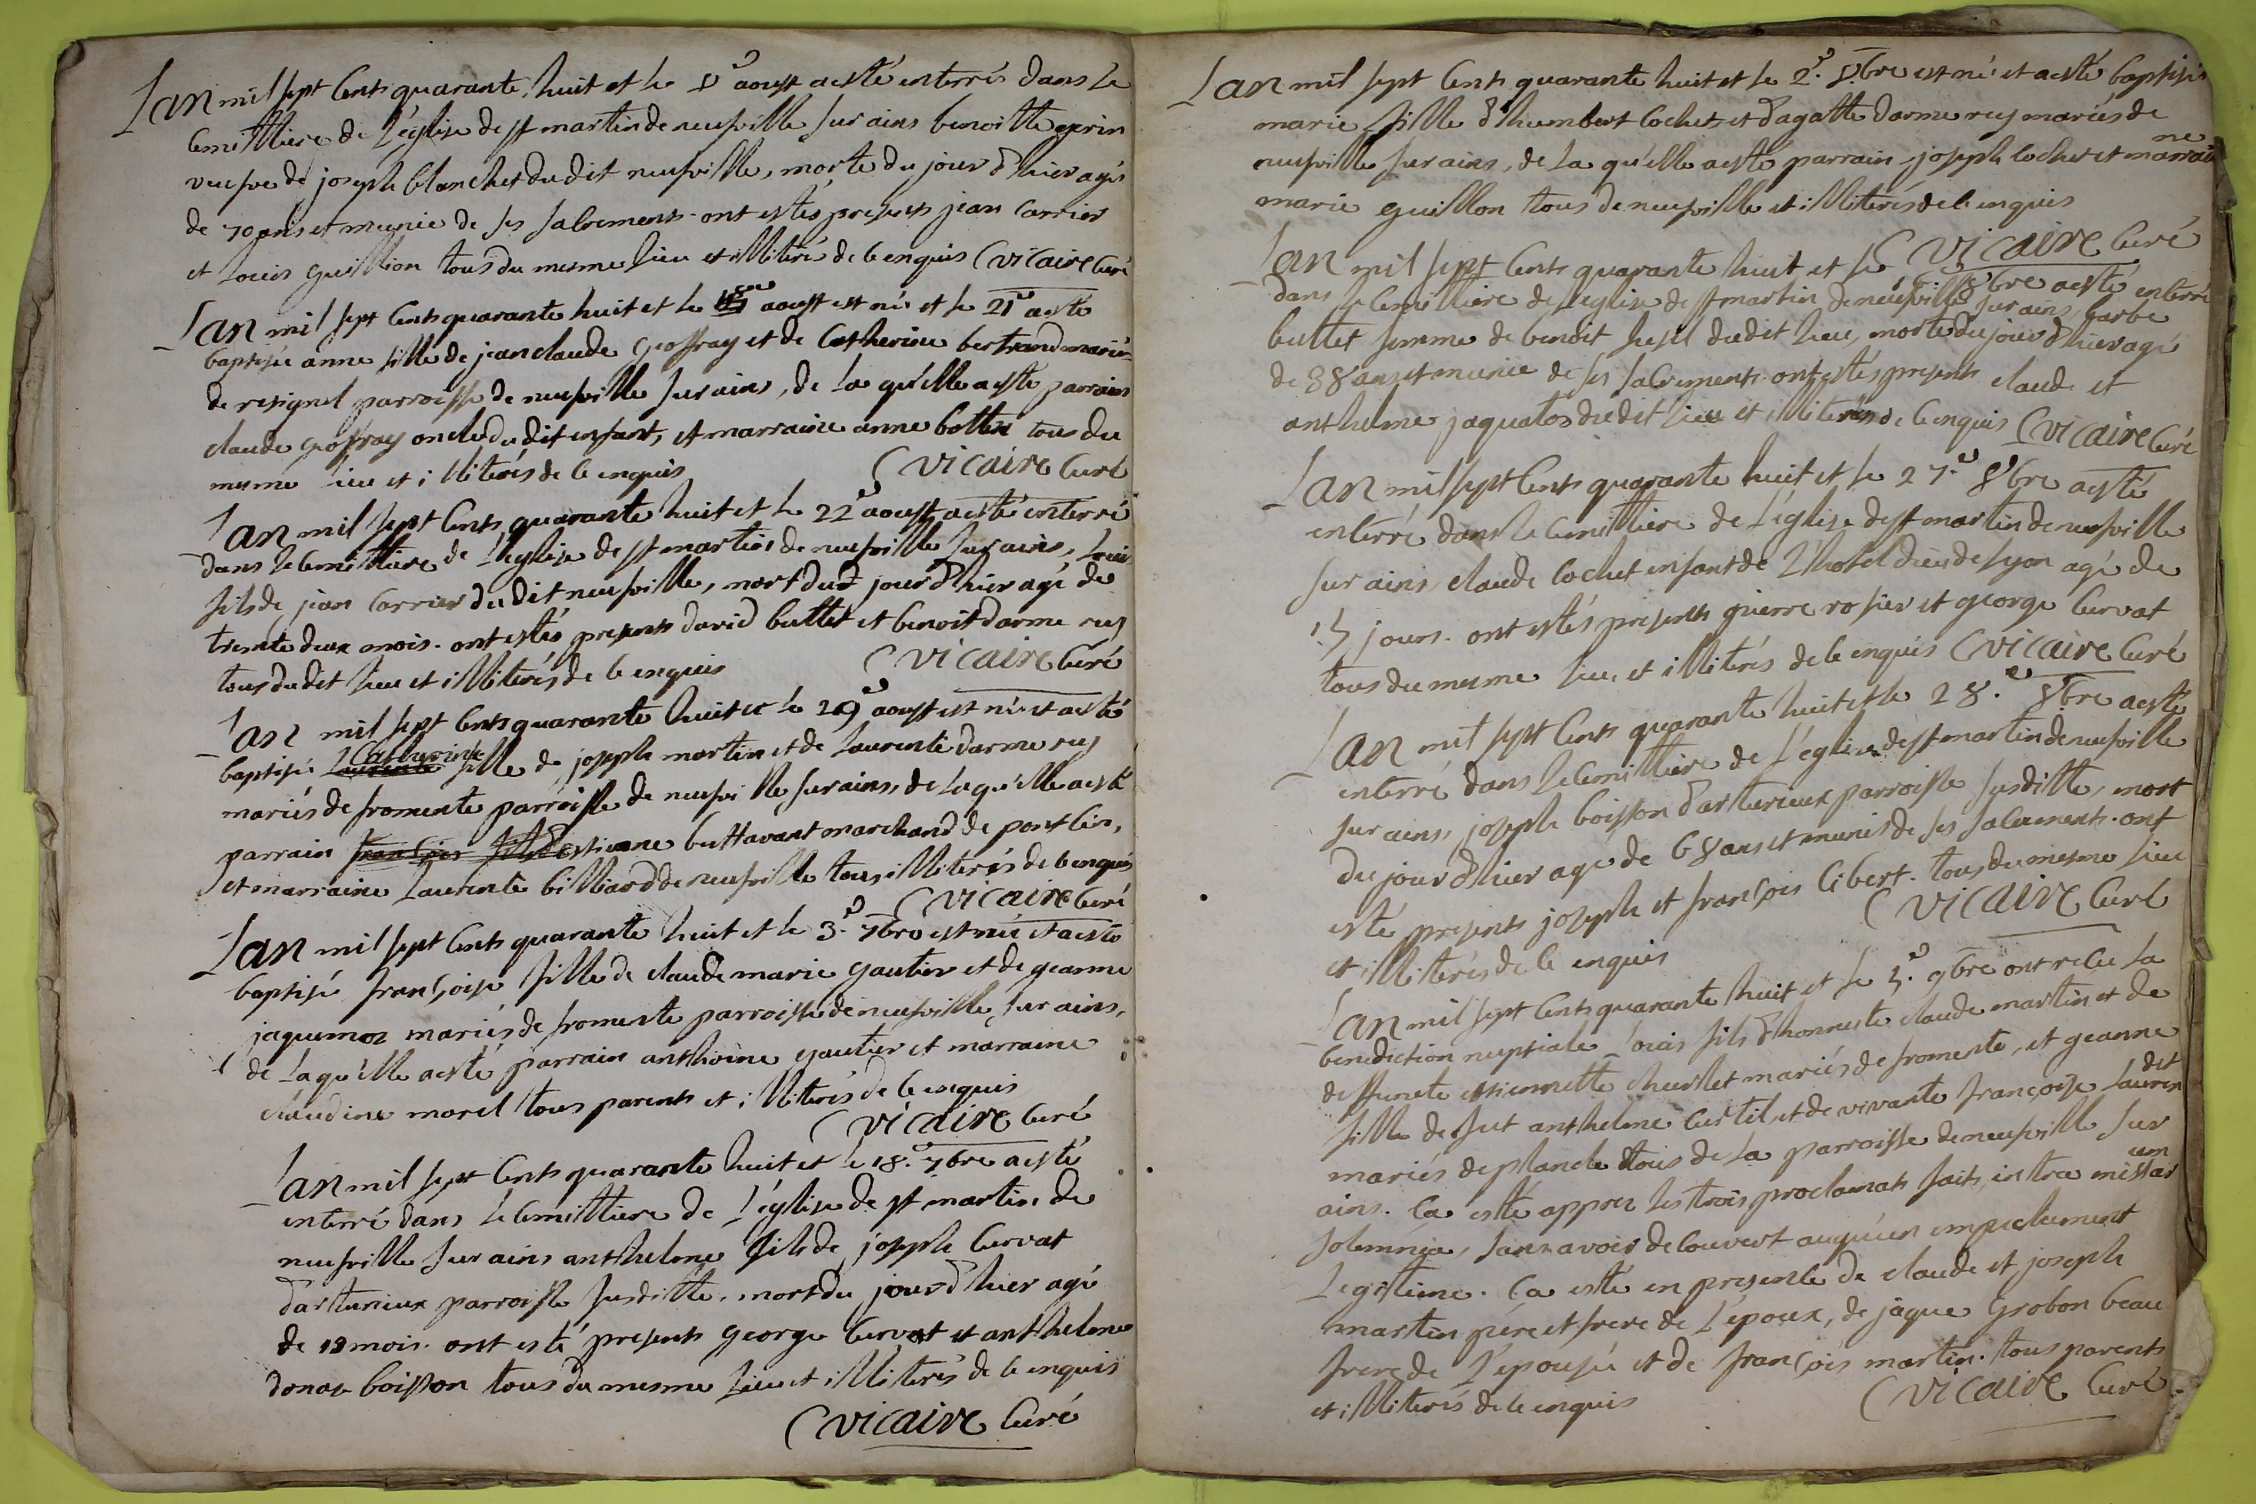 Lan mil sept cents quarante huit et le 8e aoust a esté enterrés dans le
cemittiere de l'église de st martin de neufville sur ains benoitte
veufve de joseph blanchet du dit neufville, morte du jour d'hier agés
de 70 ans et munie de ses sacrements. ont estés presents jean carrier
et Louis guillion tous du mesme lieu et illiterés de ce enquis C vicaire Curé
Lan mil sept cents quarante huit et le aoust est née et le 21e a esté
baptisée anne fille de jean claude geoffray et de Catherine bertrand mariés
de resignel parroisse de neufville sur ains, de la qu'elle a esté parrain
claude geoffray oncle du dit enfant, et marraine anne tous du
mesme lieu et illiterés de ce enquis C vicaire Curé
Lan mil sept cents quarante huit et le 22e aoust a esté enterré
dans le cemittiere de l'eglise de st martin de neufville sur ains, Louis
fils de jean carrier du dit neufville, mort du jour d'hier agé de
trente deux mois. ont estés presents david buttet et benoit darmerey
tous dudit lieu et illiterés de ce enquis C vicaire Curé
Lan mil sept cents quarante huit et le 29e aoust est née et a esté
baptisé Catherine fille de joseph martin et de Laurente darmerey
mariés de fromente parroisse de neufville sur ains, de la qu'elle a esté
parrain estienne buttavant marchand de pontcin,
et marraine Laurente billiard de neufville tous illiterés de ce enquis
C vicaire Curé
Lan mil sept cents quarante huit et le 3.e 7bre est née et a esté
baptisé françoise fille de claude marie gautier et de geanne
jaquemoz mariés de fromente parroisse de neufville sur ains,
de la qu'elle a esté parrain anthoine gautier et marraine
claudine morel tous parents et illiterés de ce enquis
C vicaire Curé
Lan mil sept cents quarante huit et le 18.e 7bre a esté
enterré dans le cemittiere de l'église de st martin de
neufville sur ains anthelme fils de joseph Curvat
d'arturieux parroisse susditte, mort du jour d'hier agé
de 18 mois. ont esté presents george Curvat et anthelme
donat boisson tous du mesme lieu et illiterés de ce enquis
C vicaire Curé
Lan mil sept cents quarante huit et le 2.e 8bre est née et a esté baptisée
marie fille d'humbert cochet et d'agatte darmerey mariés de
neufville sur ains, de la qu'elle a esté parrain joseph cochet et marraine
marie guillon tous de neufville et illiterés de ce enquis
C vicaire Curé
Lan mil sept cents quarante huit et le 8bre a esté enterré
dans le cemittiere de l'eglise de st martin de neufville sur ains, barbe
buttet femme de benoit du dit lieu, morte du jour d'hier agé
de 38 ans et munie de ses sacrements. ont estés presents claude et
anthelme jaquatos du dit lieu et illiterés de ce enquis C vicaire Curé
Lan mil sept cents quarante huit et le 27.e 8bre a esté
enterré dans le cemittiere de l'église de st martin de neufville
sur ains, claude cochet enfant de l'hotel dieu de lyon agé de
15 jours. ont estés presents pierre rosier et george Curvat
tous du mesme lieu, et illiterés de ce enquis C vicaire Curé
Lan mil sept cents quarante huit et le 28.e 8bre a esté
enterré dans le cemittiere de l'eglise de st martin de neufville
sur ains, joseph boisson d'arturieux parroisse susditte, mort
du jour d'hier agé de 68 ans et munis de ses sacrements. ont
esté presents joseph et françois Cibert. tous du mesme lieu
et illiterés de ce enquis C vicaire Curé
Lan mil sept cents quarante huit et le 5.e 9bre ont reçu la
benediction nuptiale Louis fils d'honneste claude martin et de
deffuncte estiennette mariés de fromente, et geanne
fille de fut anthelme Curtil, et de vivante françoise dit Laurent
mariés de planche tous de la parroisse de neufville sur
ains. Ca esté apprez les trois proclamats faits, intra missarum
solemnia, sans avoir decouvert auqu'un empechement
Legitime. Ca esté en presence de claude et joseph
martin père et frere de l'époux, de jaque grobon beau
frere de l'épousée et de françois martin. tous parents
et illiterés de ce enquis C vicaire Curé